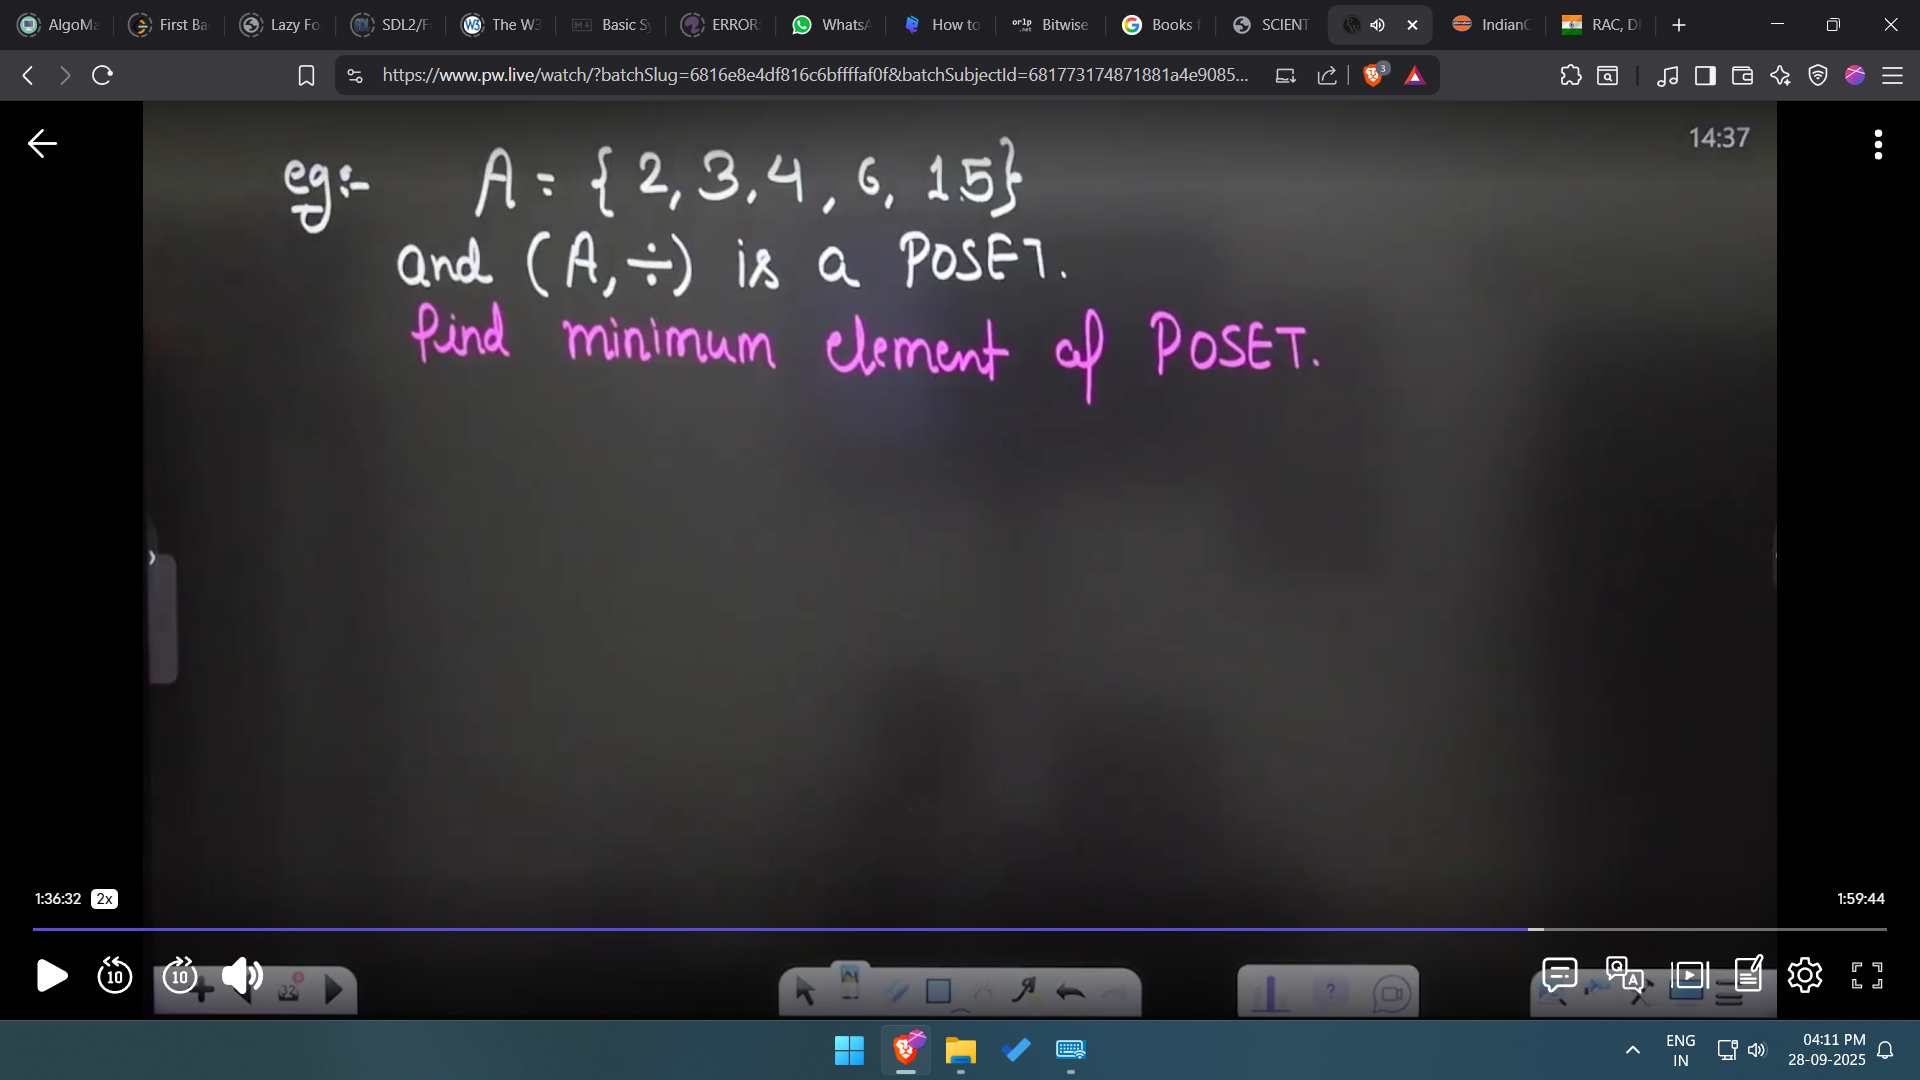 AlgoMa First Ba Lazy Fo SDL2/F The W3 Basic Sy ERROR: WhatsA How to Bitwise Books f SCIENT IndianC RAC, D
https://www.pw.live/watch/?batchSlug=6816e8e4df816c6bffffaf0f&batchSubjectId=681773174871881a4e9085... 3
14:37
eg:- A = { 2, 3, 4, 6, 15}
and (A, ÷) is a POSET.
find minimum element of POSET.
1:36:32 2x 1:59:44
10 10 32
ENG 04:11 PM
IN 28-09-2025